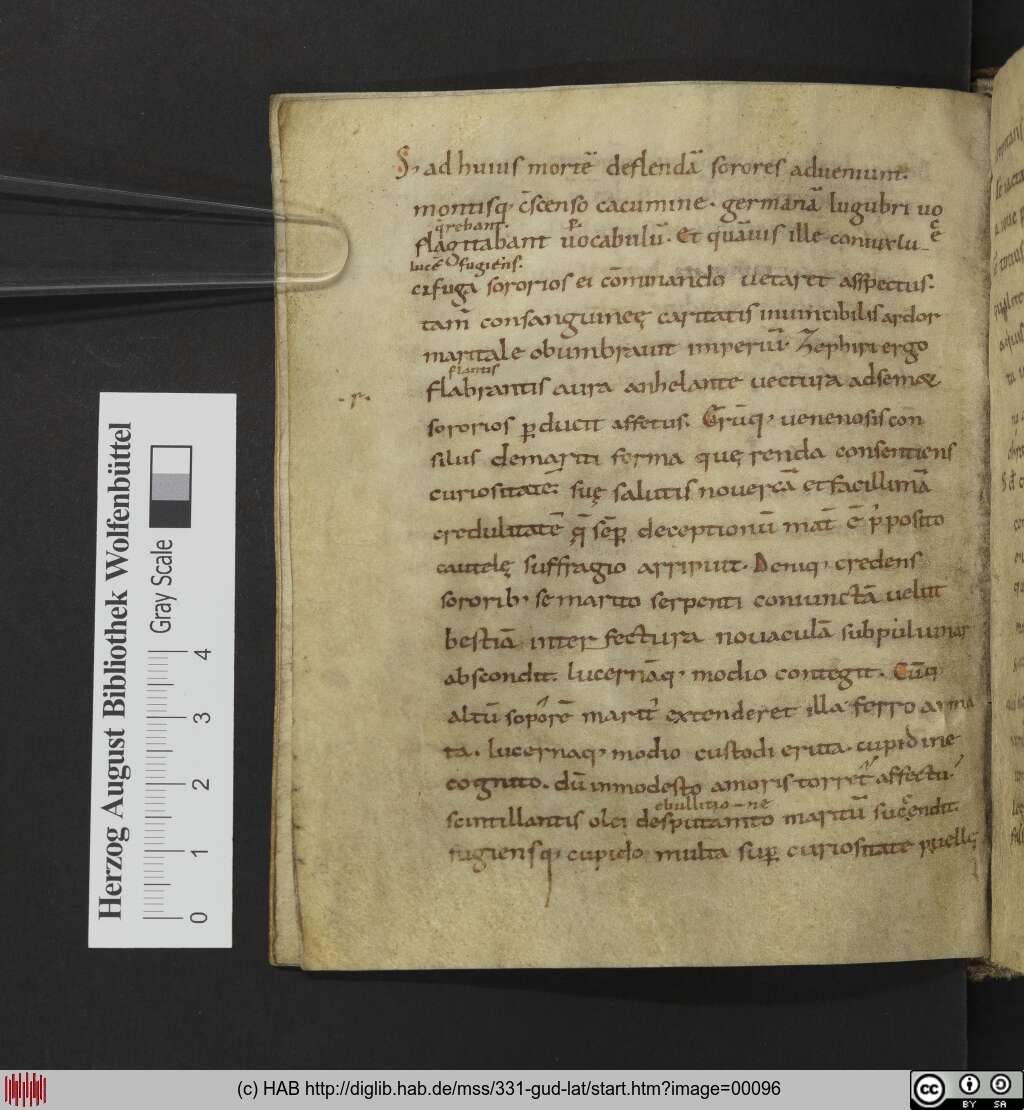 S; ad huius mortē deflendā sorores adveniunt.
montisq; c̄scenso cacumine. germanā lugubri uo
q̄rebant. p. cē
flagitabant uocabulū. Et quāuis ille coniux lu
lucē fugiens.
cifuga sororios ei cōminando uetaret aspectus.
tam̄ consanguineę caritatis inuincibilis ardor
maritale obumbrauit imperiū. Zephiri ergo
flantis
flabrantis aura anhelante uectura ad semæ
·r·
sororios ꝑducit affetus. Erūq; uenenosis con
siliis de mariti forma quęrenda consentiens
curiositatē. suę salutis nouercā et facillimā
credulitatē q̄ sēꝑ deceptionū mat̄ ē p̄posito
cautelę suffragio arripuit. Deniq; credens
sororib; se marito serpenti coniunctā uelut
bestiā interfectura nouaculā sub puluinar
abscondit. lucernāq; modio contegit. Cūq;
altū soporē marit᷒ extenderet illa ferro arma
ta. lucernaq; modio custodi erutta. cupidine
cognito. dū inmodesto amoris torret᷒ affectu.
ebullitio-ne
scintillantis olei desputamto maritū sucęndit.
fugiensq; cupido multa suꝑ curiositate puellę
Herzog August Bibliothek Wolfenbüttel
Gray Scale
0 1 2 3 4
(c) HAB http://diglib.hab.de/mss/331-gud-lat/start.htm?image=00096
cc BY SA